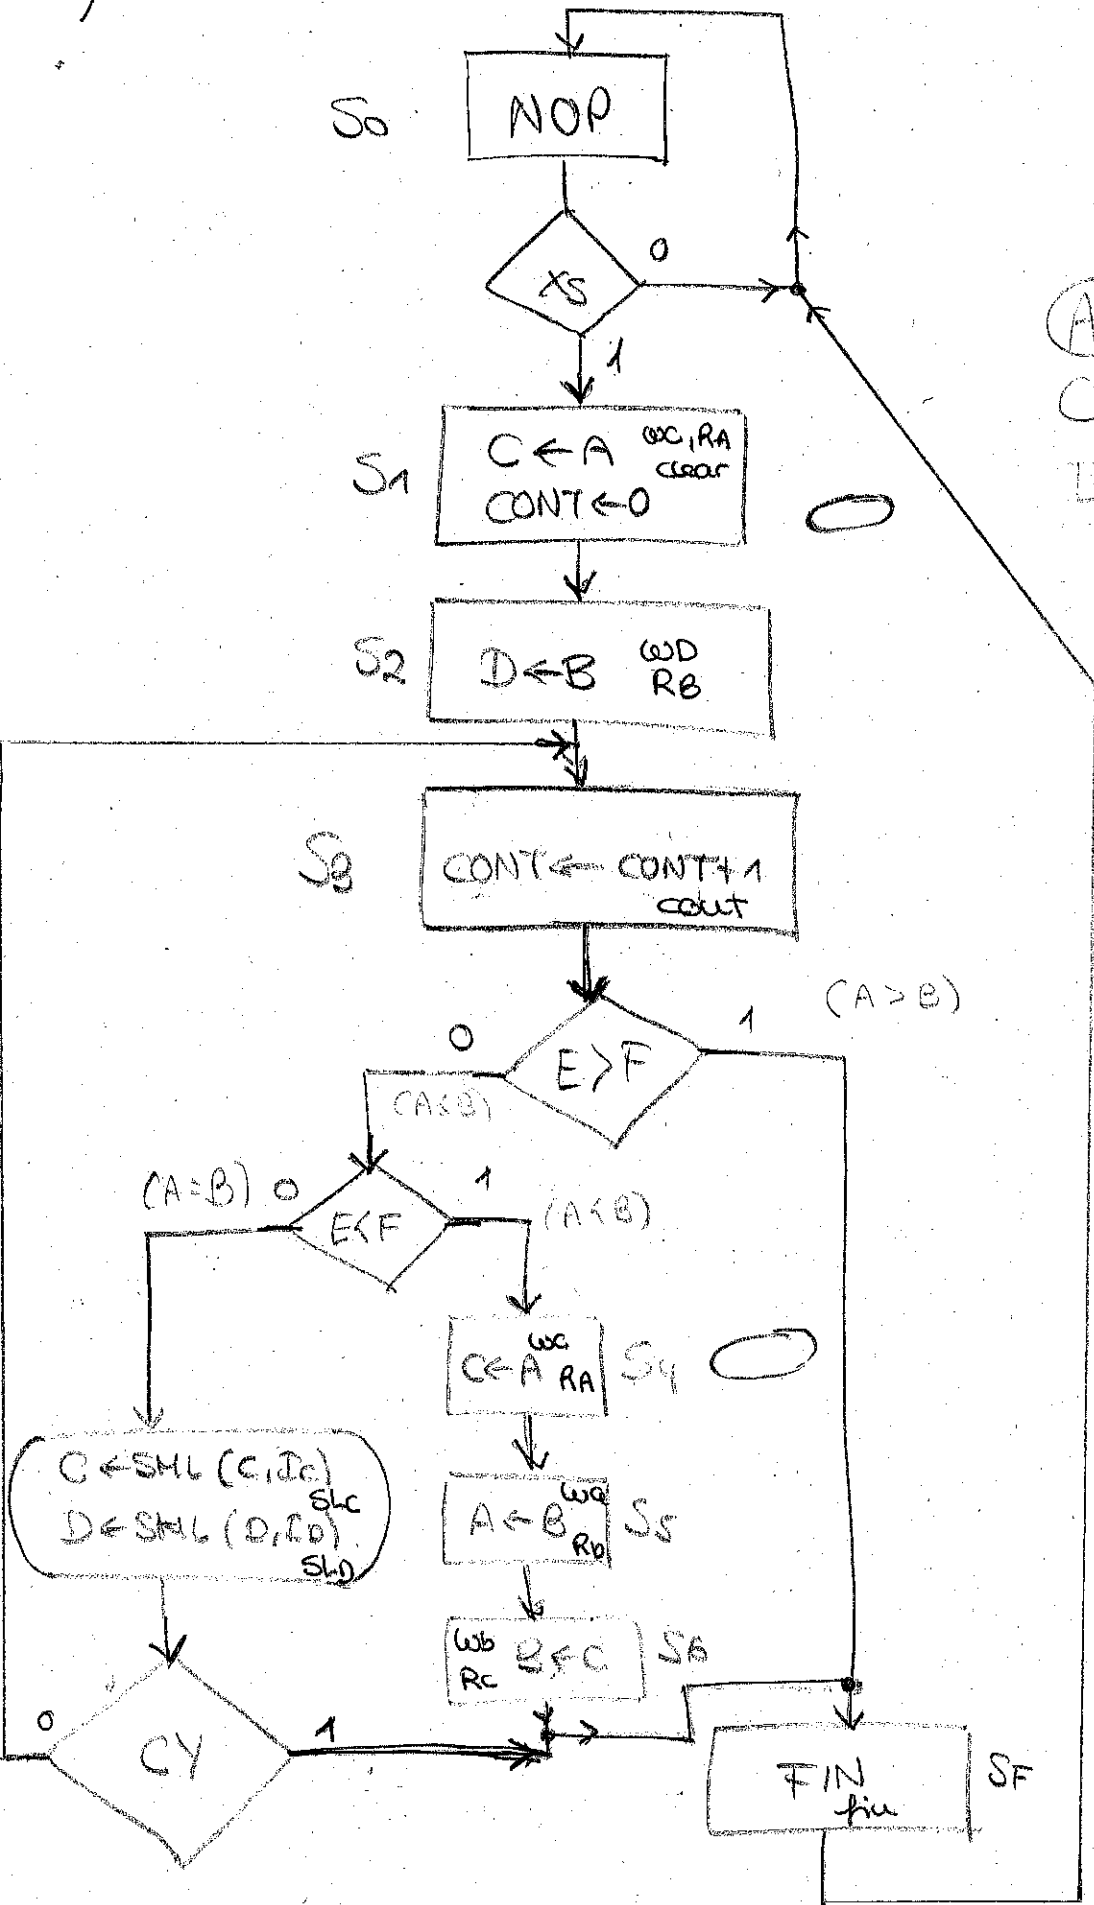 S0
NOP
XS
0
1
A
C
S1
C ← A WC, RA
clear
CONT ← 0
S2
D ← B WD
RB
S3
CONT ← CONT + 1
cout
(A > B)
0
E > F
1
(A ≤ B)
(A = B) 0
E < F
1
(A < B)
C ← A wc
RA
S4
C ← SHL (C, IC)
SLC
D ← SHL (D, ID)
SLD
A ← B wa
Rb
S5
wb
Rc
B ← C
S6
0
CY
1
FIN
fin
SF